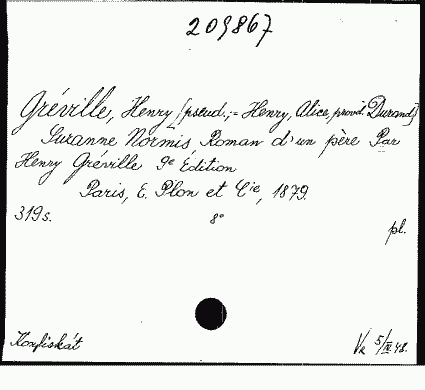 209867
Gréville, Henry [pseud.; = Henry, Alice, provd. Durand]
Suzanne Normis, Roman d'un père Par
Henry Gréville 9e Édition
Paris, E. Plon et Cie, 1879.
319 s. 8° pl.
Konfiskát Va 5/IV 48.